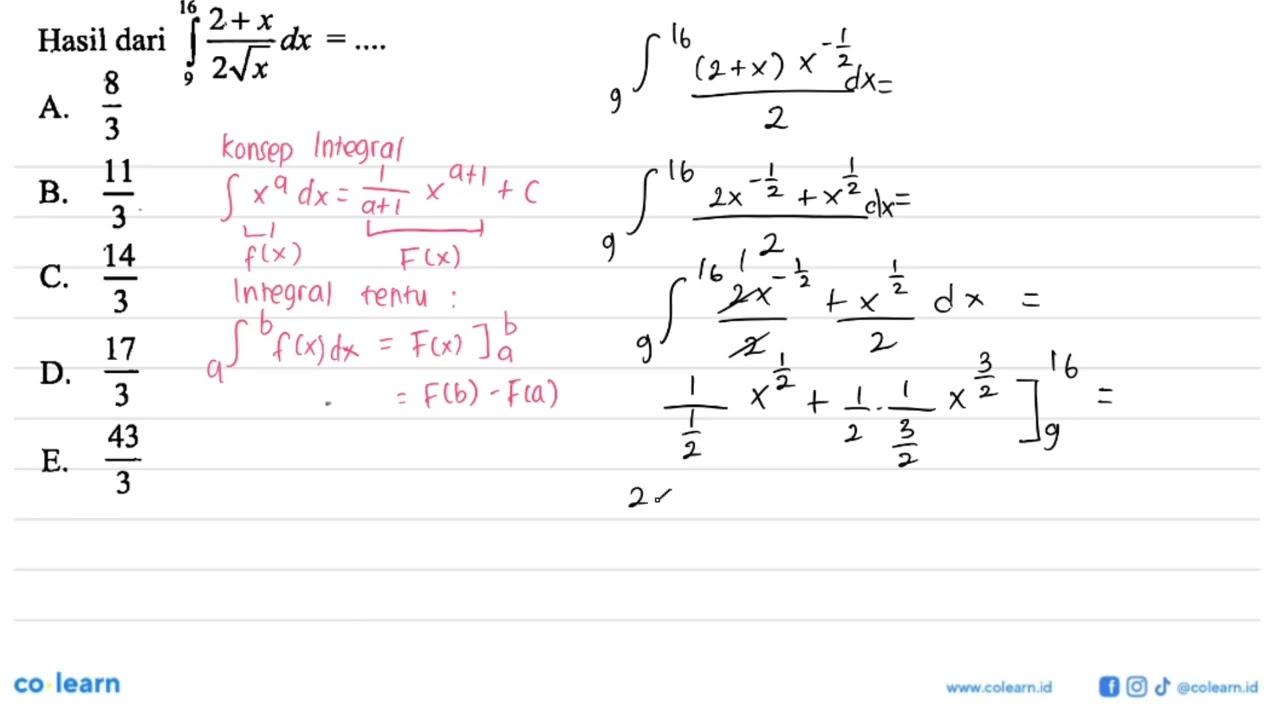 Hasil dari ∫₉¹⁶ (2 + x)/(2√x) dx = ....
A. 8/3
B. 11/3
C. 14/3
D. 17/3
E. 43/3
Konsep Integral
∫ x^a dx = 1/(a+1) x^(a+1) + C
f(x) F(x)
Integral tentu :
a∫^b f(x) dx = F(x) ]_a^b
= F(b) - F(a)
₉∫¹⁶ (2+x) x^(-1/2) / 2 dx =
₉∫¹⁶ (2x^(-1/2) + x^(1/2)) / 2 dx =
₉∫¹⁶ 2x^(-1/2) / 2 + x^(1/2) / 2 dx =
1/(1/2) x^(1/2) + 1/2 · 1/(3/2) x^(3/2) ]₉¹⁶ =
2
co learn
www.colearn.id
@colearn.id